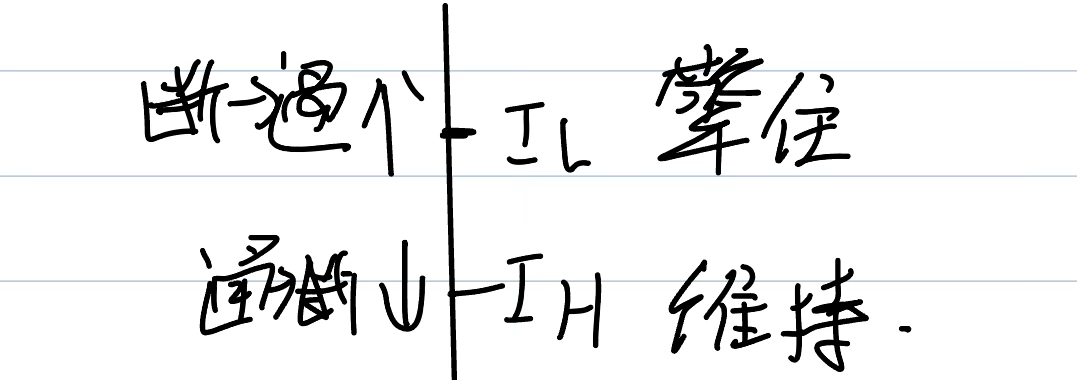 断→通↑ I_L 擎住
通→断↓ I_H 维持.